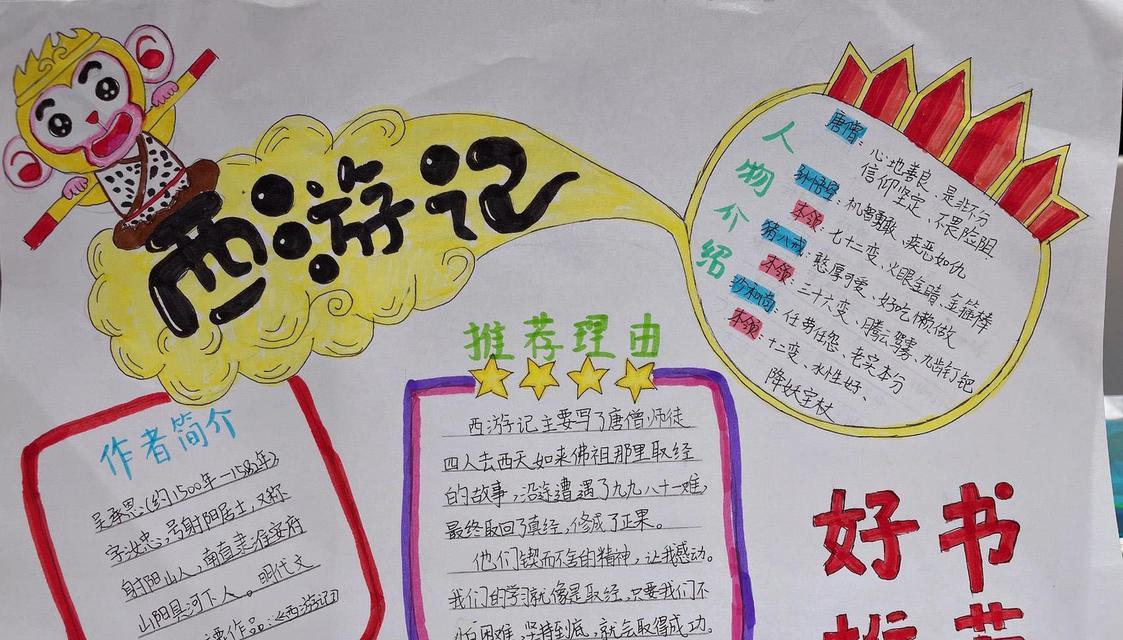 西游记
人物介绍
唐僧：心地善良、是非不分
信仰坚定、不畏险阻
孙悟空：机智勇敢、疾恶如仇
本领：七十二变、火眼金睛、金箍棒
猪八戒：憨厚可爱、好吃懒做
本领：三十六变、腾云驾雾、九齿钉钯
沙和尚：任劳任怨、老实本分
本领：十二变、水性好、
降妖宝杖
推荐理由
西游记主要写了唐僧师徒
四人去西天如来佛祖那里取经
的故事，沿途遭遇了九九八十一难，
最终取回了真经，修成了正果。
他们锲而不舍的精神，让我感动。
我们的学习就像是取经，只要我们不
怕困难，坚持到底，就会取得成功。
作者简介
吴承恩：(约1500年—1582年)
字汝忠，号射阳居士，又称
射阳山人，南直隶淮安府
山阳县河下人。明代文
要作品：《西游记》
好书
推荐